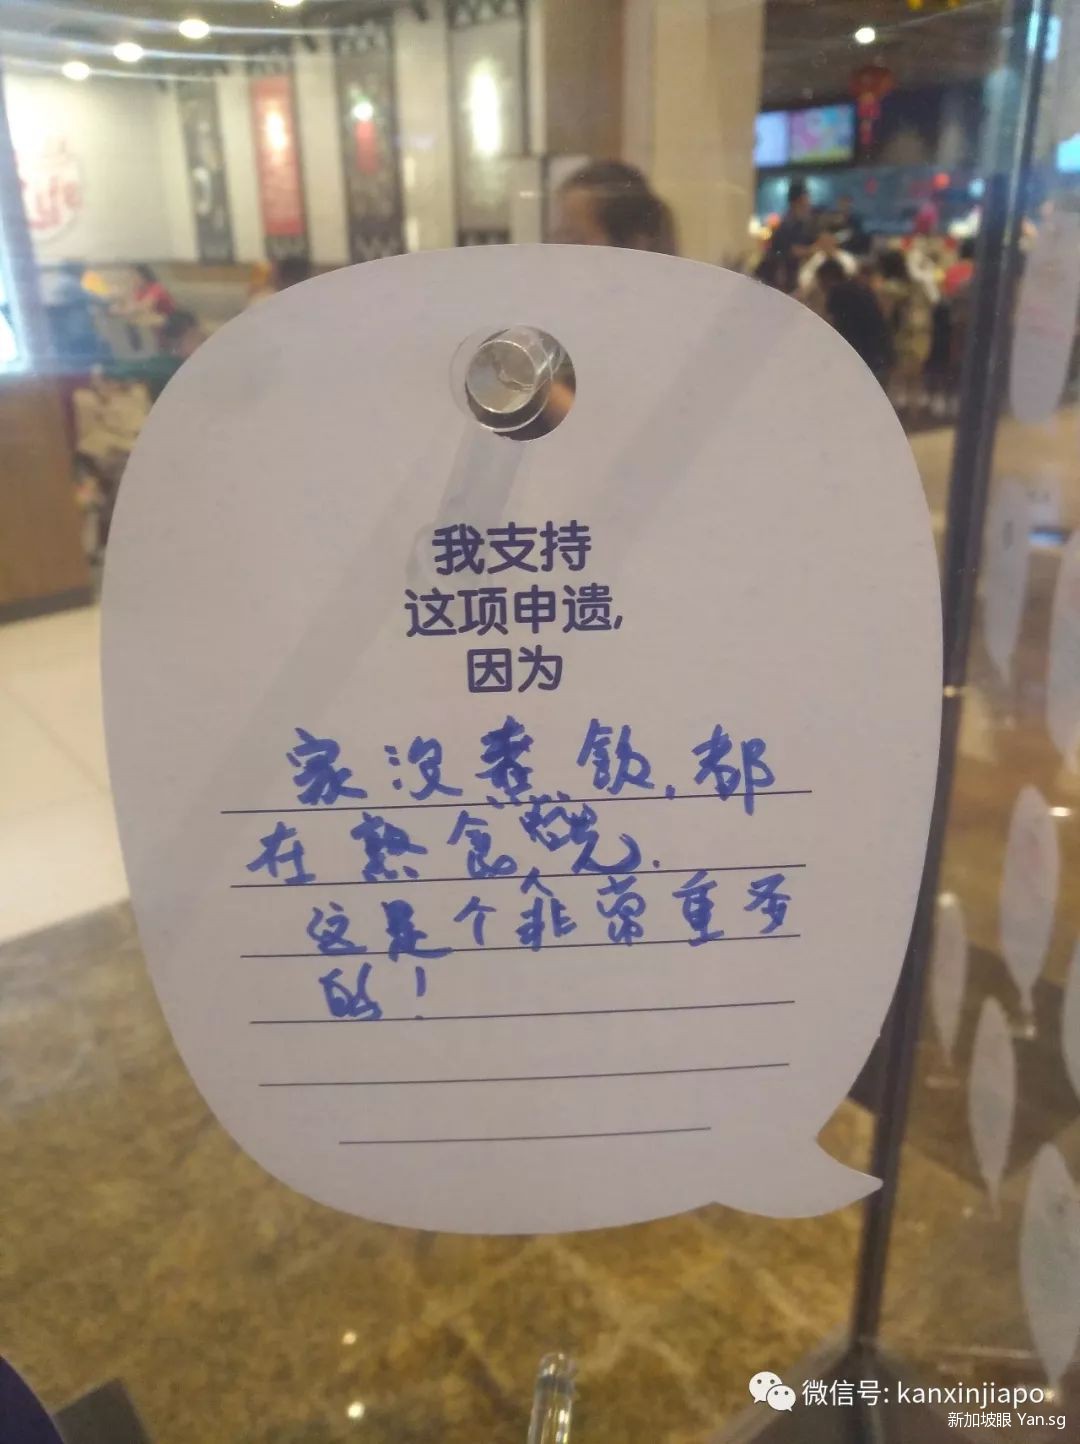 我支持
这项申遗,
因为
家没煮饭,都
在熟食
这是个非常重
的!
微信号: kanxinjiapo
新加坡眼 Yan.sg